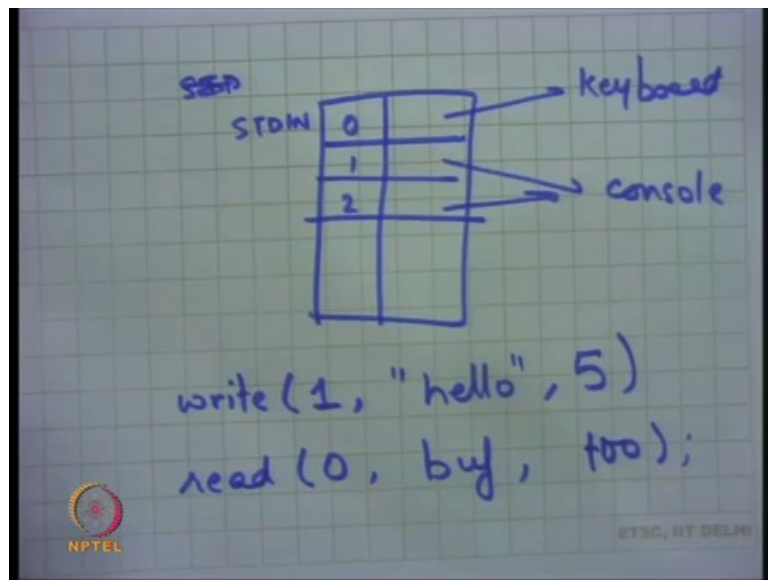 STDIN 0 keyboard
1
2 console
write (1, "hello", 5)
read (0, buf, 100);
NPTEL
ETSC, IIT DELHI